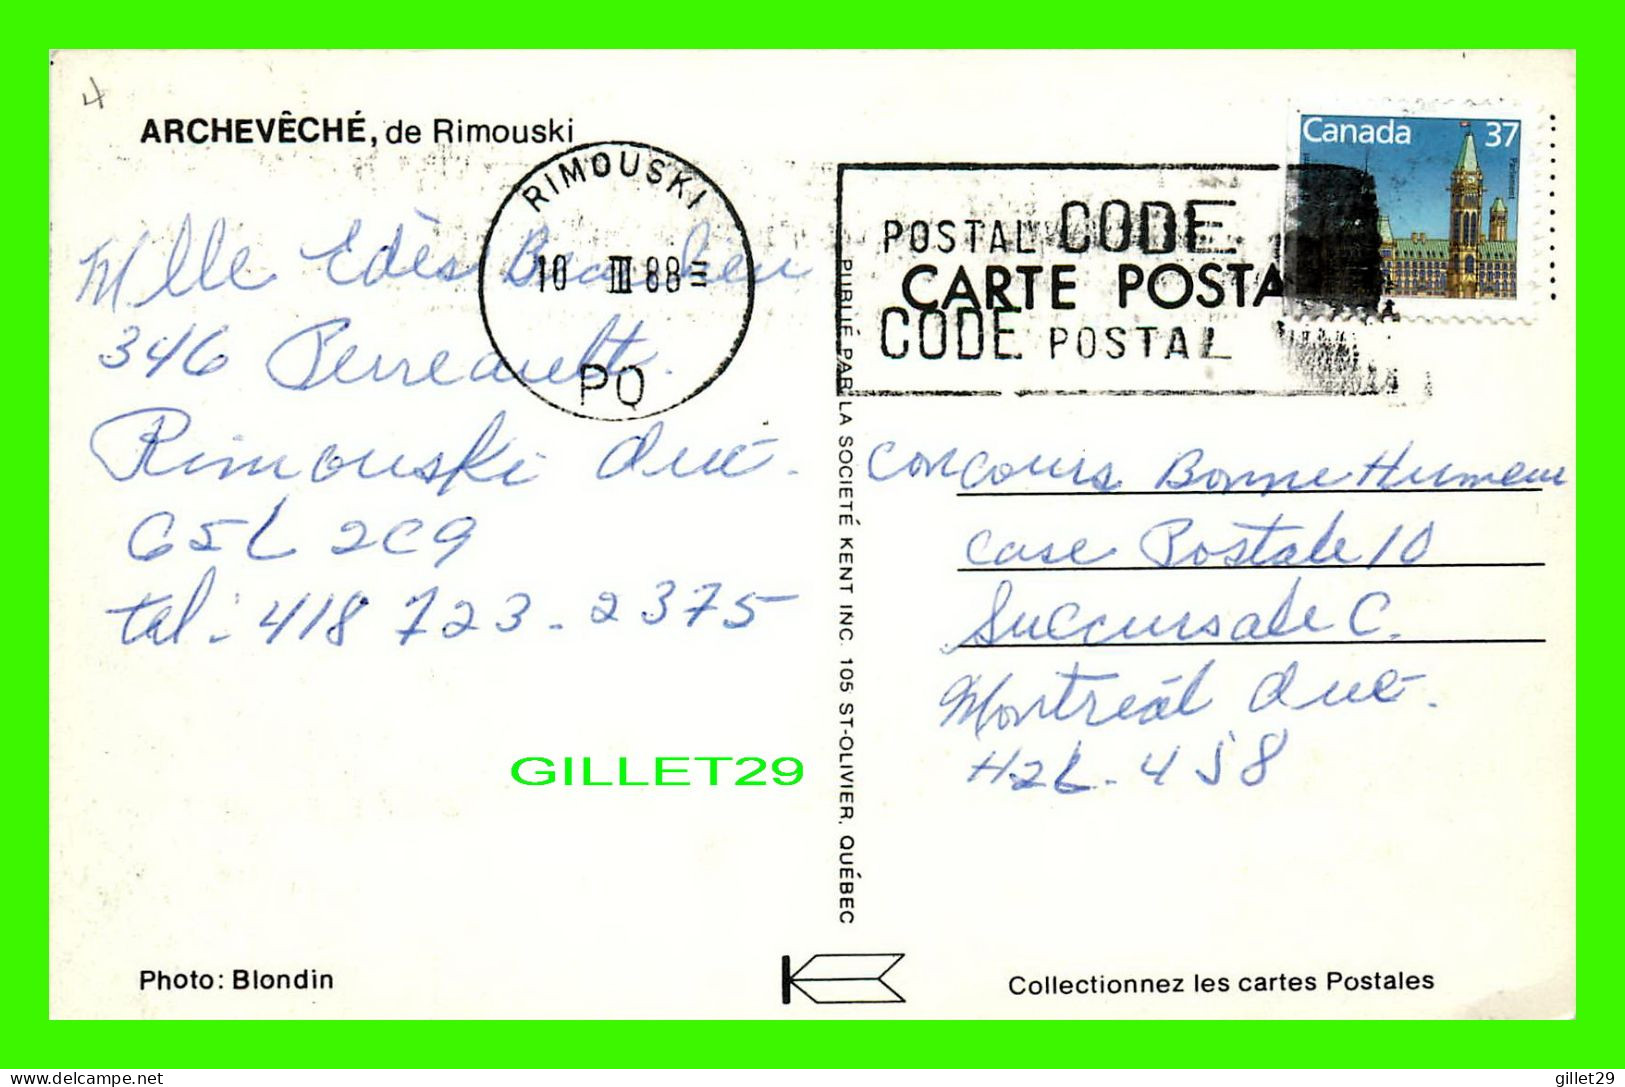 4
ARCHEVÊCHÉ, de Rimouski
RIMOUSKI
10 III 88
PQ
POSTAL CODE
CODE POSTAL
CARTE POSTA
Canada 37
Parliament
Mlle Edès Beaulieu
346 Perreault.
Rimouski Qué.
G5L 2C9
tél: 418 723-2375
PUBLIÉ PAR LA SOCIETÉ KENT INC. 105 ST-OLIVIER, QUÉBEC
Concours Bonne Humeur
Case Postale 10
Succursale C.
Montréal Qué.
H2L-4J8
GILLET29
Photo: Blondin
Collectionnez les cartes Postales
delcampe.net
gillet29